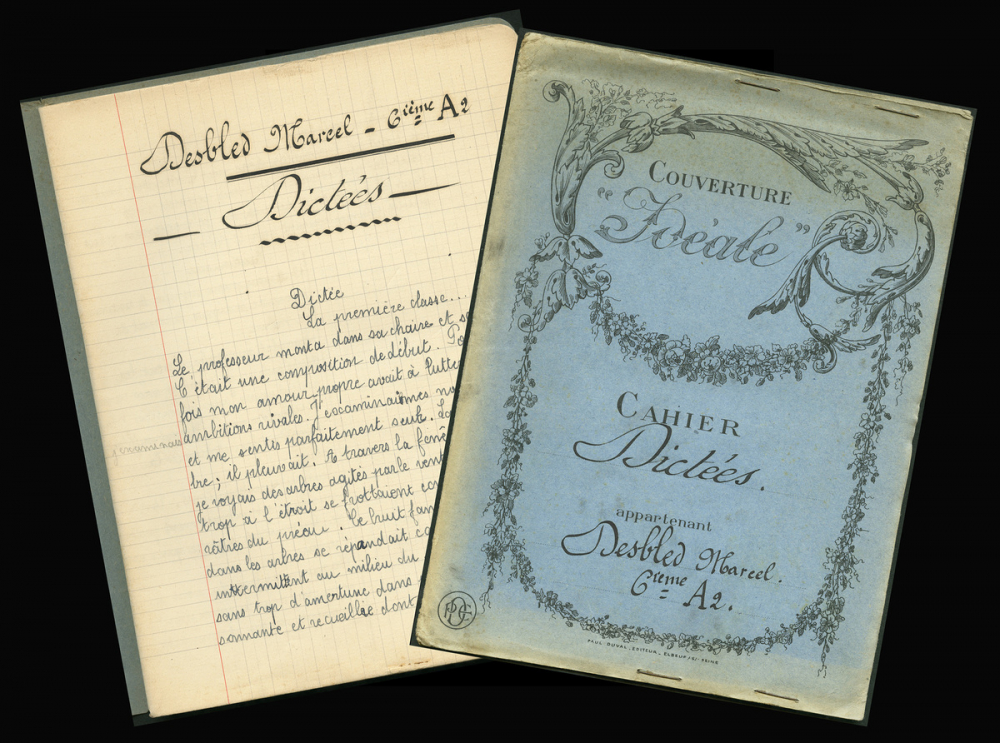 Desbled Marcel - 6ième A2
Dictées
Dictée
La première classe...
Le professeur monta dans sa chaire et
C'était une composition de début.
fois mon amour propre avait à lutter
ambitions rivales. J'examinai mes
j'examinais
et me sentis parfaitement seul.
bre ; il pleuvait. A travers la fenê
je voyais des arbres agités par le vent
trop à l'étroit se frottaient
râtres du préau. Ce bruit
dans les arbres se répandait
intermittent au milieu du
sans trop d'amertume dans
sonnante et recueillie dont
COUVERTURE
"Idéale"
CAHIER
Dictées.
appartenant
Desbled Marcel.
6ième A2.
PAUL DUVAL, EDITEUR, ELBEUF S/ SEINE